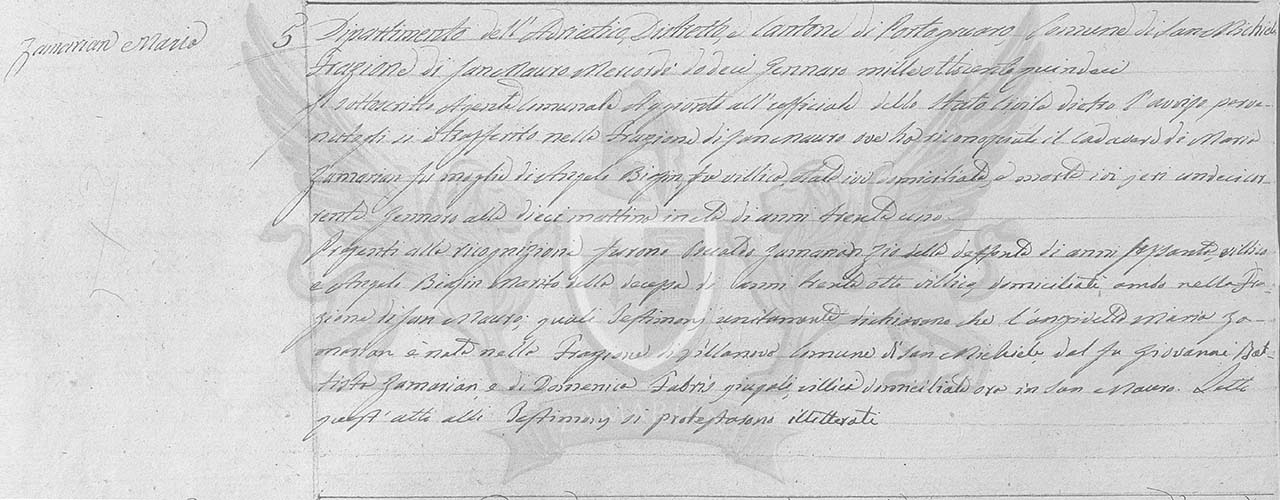 Zamarian Maria
5
Dipartimento dell'Adriatico, Distretto e Cantone di Portogruaro, Comune di San Michiele
Frazione di San Mauro Mercordì dodeci Gennaro mille ottocento quindeci
Il sottoscritto Agente Comunale Aggionto all'ufficiale dello Stato Civile dietro l'avviso perve-
nutogli si è trasferito nella Frazione di San Mauro ove ha riconosciuto il Cadavere di Maria
Zamarian fu moglie di Angelo Biasin, fu villica, domiciliata e morta ivi jeri undeci cor-
rente Gennaro alle dieci mattina in età di anni trenta uno.
Presenti alla ricognizione furono Osvaldo Zamarian Zio della deffonta di anni sessanta, villico
e Angelo Biasin Marito della decessa di anni trenta otto villico, domiciliati ambo nella Fra-
zione di San Mauro; quali Testimonj unitamente dichiarano che l'anzidetta Maria Za-
marian è nata nella Frazione di Villanova Comune di San Michiele dal fu Giovanni Bat-
tista Zamarian, e di Domenica Fabris giugali, villica domiciliata ora in San Mauro. Letto
quest'atto alli Testimonj si protestarono illitterati